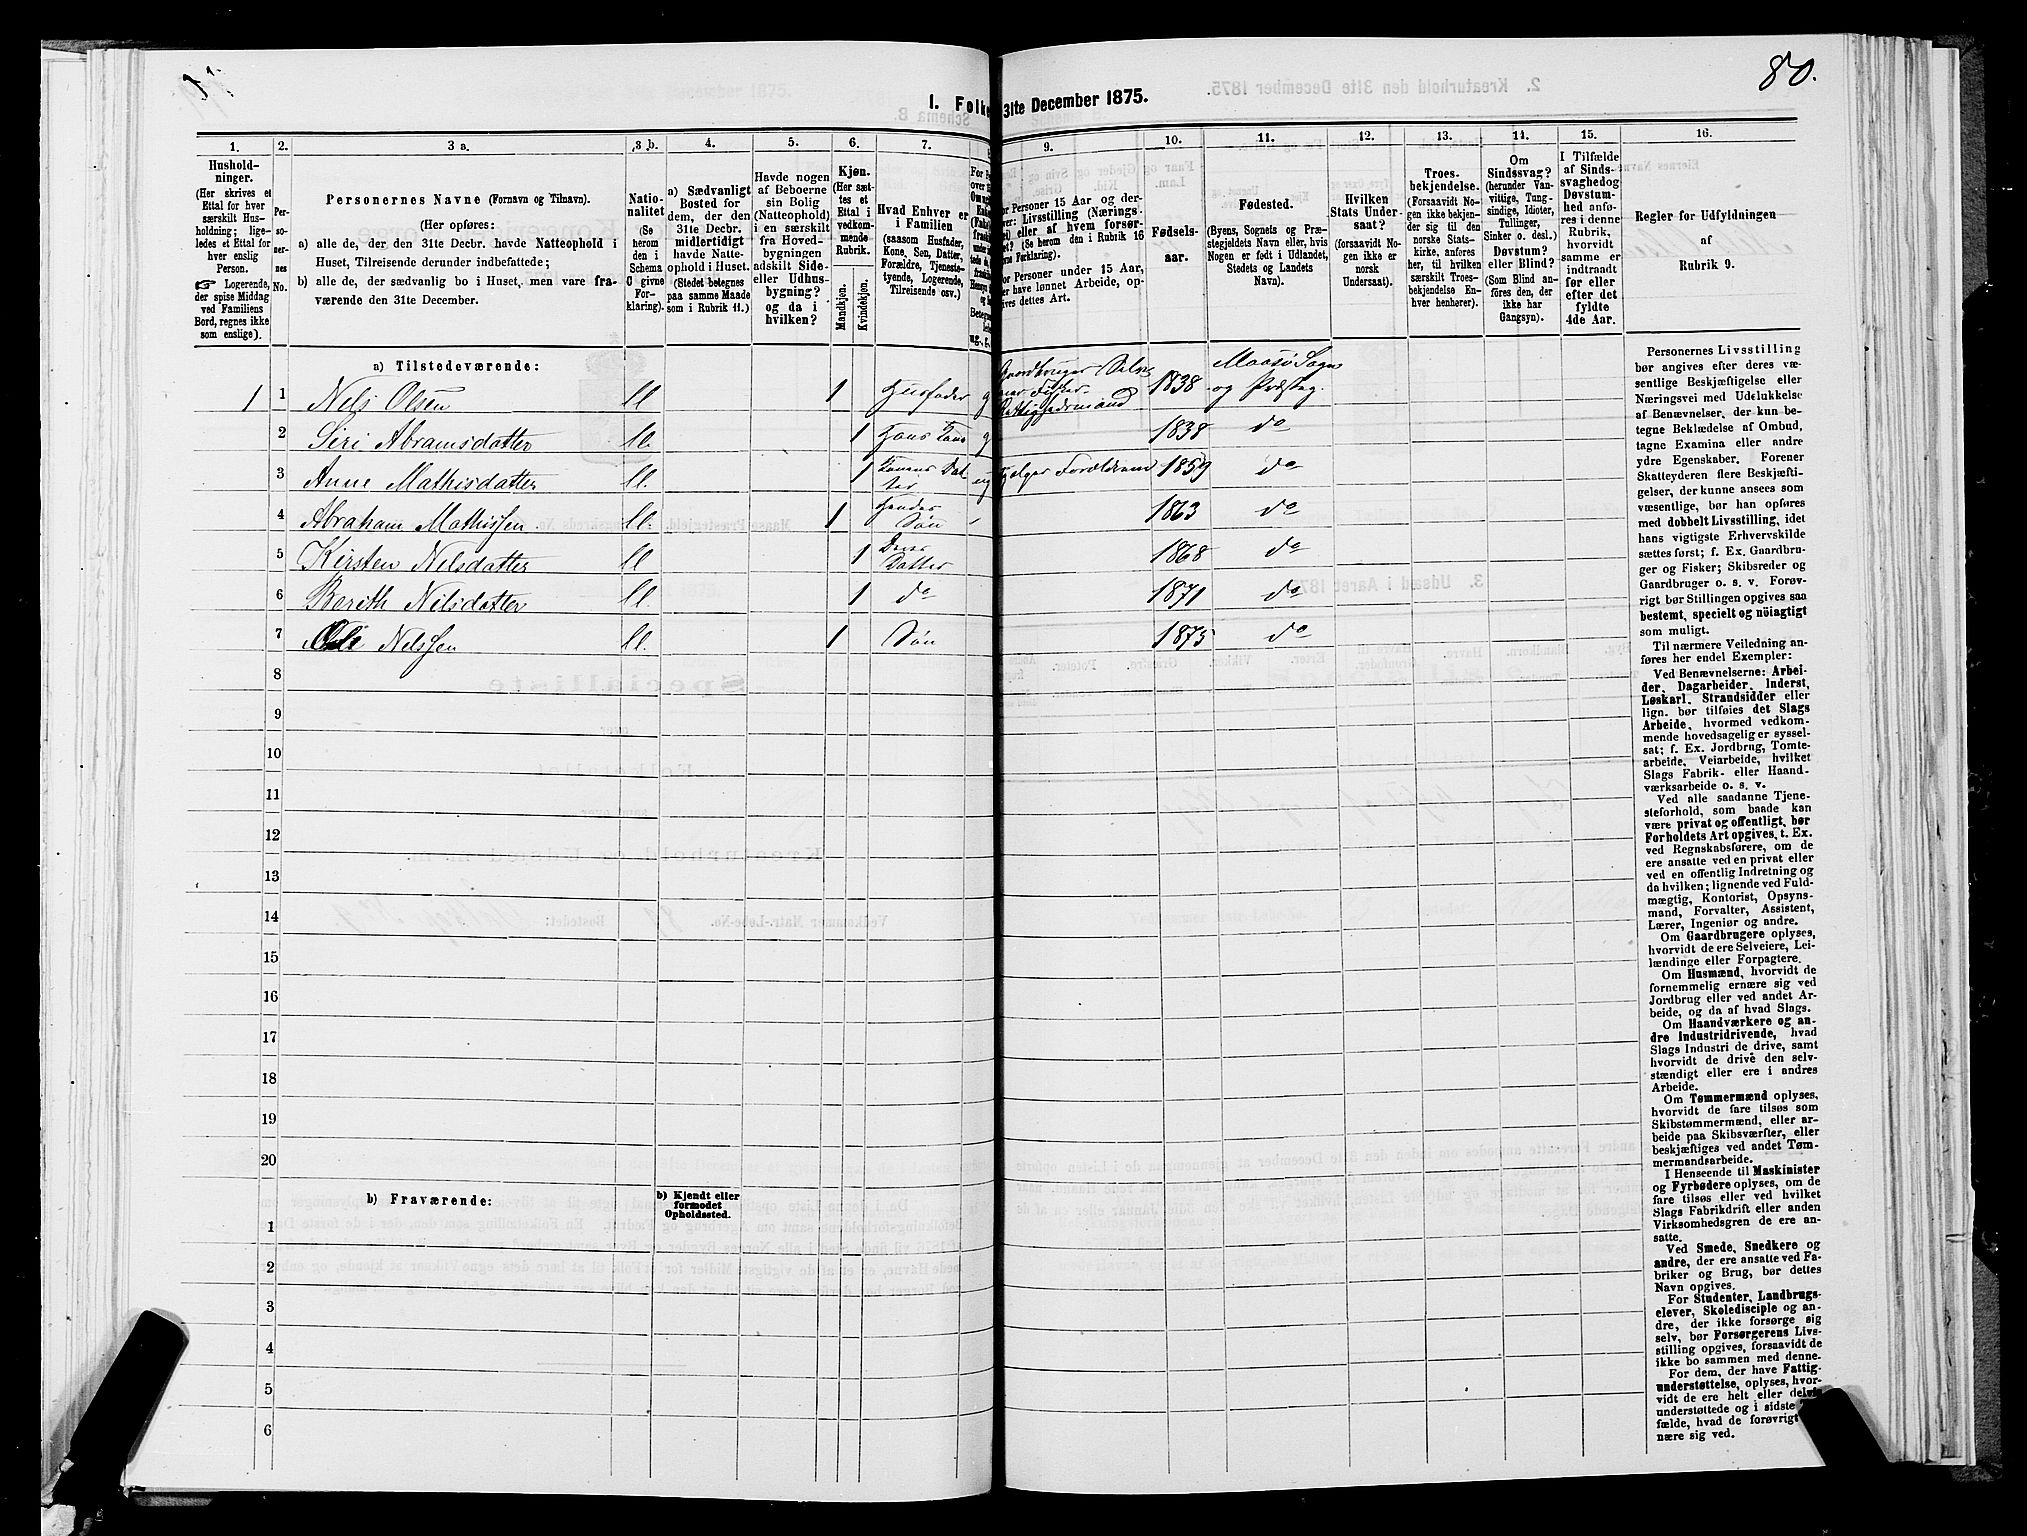 80.
I. Folke
31te December 1875.
1.
2.
3 a.
3 b.
4.
5.
6.
7.
9.
10.
11.
12.
13.
14.
15.
16.
Hushold-
ninger.
(Her skrives et
Ettal for hver
særskilt Hus-
holdning; lige-
ledes et Ettal for
hver enslig
Person.
Logerende,
der spise Middag
ved Familiens
Bord, regnes ikke
som enslige).
Per-
so-
ner-
nes
No.
Personernes Navne (Fornavn og Tilnavn).
(Her opføres:
a) alle de, der den 31te Decbr. havde Natteophold i
Huset, Tilreisende derunder indbefattede;
b) alle de, der sædvanlig bo i Huset, men vare fra-
værende den 31te December.
Natio-
nalitet
(Se
herom
den i
Schema
C givne
For-
klaring).
a) Sædvanligt
Bosted for
dem, der den
31te Decbr.
midlertidigt
havde Natte-
ophold i Huset.
(Stedet betegnes
paa samme Maade
som i Rubrik 11.)
Havde nogen
af Beboerne
sin Bolig
(Natteophold)
i en særskilt
fra Hoved-
bygningen
adskilt Side-
eller Udhus-
bygning?
og da i
hvilken?
Kjøn.
(Her sæt-
tes et
Ettal i
vedkom-
mende
Rubrik.
Mandkjøn.
Kvindekjøn.
Hvad Enhver er
i Familien
(saasom Husfader,
Kone, Søn, Datter,
Forældre, Tjeneste-
tyende, Logerende,
Tilreisende osv.)
or Personer 15 Aar og der-
ver: Livsstilling (Nærings-
vei) eller af hvem forsør-
get? (Se herom den i Rubrik 16
vne Forklaring).
or Personer under 15 Aar,
er have lønnet Arbeide, op-
ives dettes Art.
Fødsels-
aar.
Fødested.
(Byens, Sognets og Præ-
stegjeldets Navn eller, hvis
Nogen er født i Udlandet,
Stedets og Landets
Navn).
Hvilken
Stats Under-
saat?
(forsaavidt No-
gen ikke er
norsk
Undersaat).
Troes-
bekjendelse.
(Forsaavidt No-
gen ikke bekjen-
der sig til den
norske Stats-
kirke, anføres
her, til hvilken
særskilt Troes-
bekjendelse En-
hver henhører).
Om
Sindssvag?
(herunder Van-
vittige, Tung-
sindige, Idioter,
Tullinger,
Sinker o. desl.)
Døvstum?
eller Blind?
(Som Blind an-
føres den, der
ikke har
Gangsyn).
I Tilfælde
af Sinds-
svaghed og
Døvstum-
hed anfø-
res i denne
Rubrik,
hvorvidt
samme er
indtraadt
før eller
efter det
fyldte
4de Aar.
Regler for Udfyldningen
af
Rubrik 9.
a) Tilstedeværende:
1 1 Nels Olsen ll 1 Husfader g Gaardbruger Selv- 1838 Maasø Sogn
og Præsteg.
2 Siri Abramsdatter ll. 1 Hans Kone g 1838 do
3 Anne Mathisdatter ll. 1 Konens Dat- ug 1859 do
ter
4 Abraham Mathissen ll. 1 Hendes 1863 do
Søn
5 Kirsten Nelsdatter ll 1 Deres 1868 do
Datter
6 Berith Nilsdatter ll. 1 do 1871 do
7 Ole Nelssen ll. 1 Søn 1875 do
8
9
10
11
12
13
14
15
16
17
18
19
20
b) Fraværende:
b) Kjendt eller
formodet
Opholdssted.
1
2
3
4
5
6
Personernes Livsstilling
bør angives efter deres væ-
sentlige Beskjæftigelse eller
Næringsvei med Udelukkelse
af Benævnelser, der kun be-
tegne Beklædelse af Ombud,
tagne Examina eller andre
ydre Egenskaber. Forener
Skatteyderen flere Beskjæfti-
gelser, der kunne ansees som
væsentlige, bør han opføres
med dobbelt Livsstilling, idet
hans vigtigste Erhvervskilde
sættes først; f. Ex. Gaardbru-
ger og Fisker; Skibsreder og
Gaardbruger o. s. v. Forøv-
rigt bør Stillingen opgives saa
bestemt, specielt og nöiagtigt
som muligt.
Til nærmere Veiledning an-
føres her endel Exempler:
Ved Benævnelserne: Arbei-
der, Dagarbeider, Inderst,
Løskarl, Strandsidder eller
lign. bør tilføies det Slags
Arbeide, hvormed vedkom-
mende hovedsagelig er syssel-
sat; f. Ex. Jordbrug, Tomte-
arbeide, Veiarbeide, hvilket
Slags Fabrik- eller Haand-
værksarbeide o. s. v.
Ved alle saadanne Tjene-
steforhold, som baade kan
være privat og offentligt, bør
Forholdets Art opgives, t. Ex.
ved Regnskabsførere, om de
ere ansatte ved en privat eller
ved en offentlig Indretning og
da hvilken; lignende ved Fuld-
mægtig, Kontorist, Opsyns-
mand, Forvalter, Assistent,
Lærer, Ingeniør og andre.
Om Gaardbrugere oplyses,
hvorvidt de ere Selveiere, Lei-
lændinge eller Forpagtere.
Om Husmænd, hvorvidt de
fornemmelig ernære sig ved
Jordbrug eller ved andet Ar-
beide, og da af hvad Slags.
Om Haandværkere og an-
dre Industridrivende, hvad
Slags Industri de drive, samt
hvorvidt de drive den selv-
stændigt eller ere i andres
Arbeide.
Om Tømmermænd oplyses,
hvorvidt de fare tilsøs som
Skibstømmermænd, eller ar-
beide paa Skibsværfter, eller
beskjæftiges ved andet Tøm-
mermandsarbeide.
I Henseende til Maskinister
og Fyrbødere oplyses, om de
fare tilsøs eller ved hvilket
Slags Fabrikdrift eller anden
Virksomhedsgren de ere an-
satte.
Ved Smede, Snedkere og
andre, der ere ansatte ved Fa-
briker og Brug, bør dettes
Navn opgives.
For Studenter, Landbrugs-
elever, Skoledisciple og an-
dre, der ikke forsørge sig
selv, bør Forsørgerens Livs-
stilling opgives, forsaavidt de
ikke bo sammen med denne.
For dem, der have Fattig-
understøttelse, oplyses, hvor-
vidt de ere helt eller delvis
understøttede og i sidste
fælde, hvad de forøvrigt
nære sig ved.